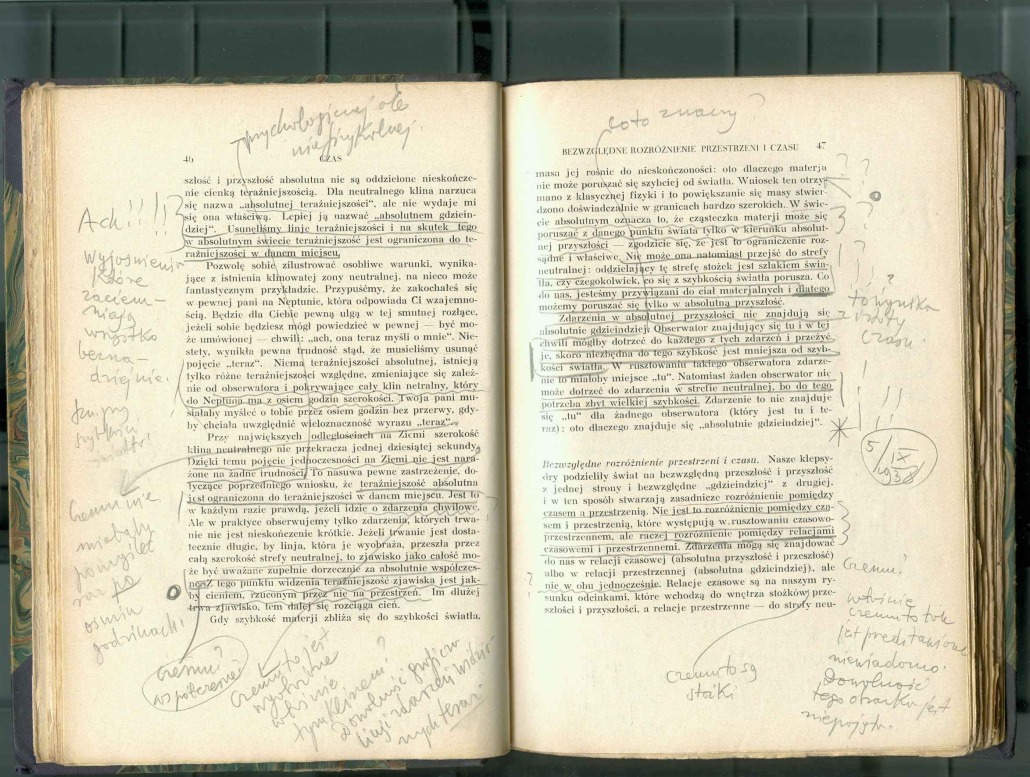 psychologicznej ale
nie fizykalnej.
46
CZAS
szłość i przyszłość absolutna nie są oddzielone nieskończe-
nie cienką teraźniejszością. Dla neutralnego klina narzuca
się nazwa „absolutnej teraźniejszości", ale nie wydaje mi
się ona właściwą. Lepiej ją nazwać „absolutnem gdziein-
dziej". Usunęliśmy linje teraźniejszości i na skutek tego
w absolutnym świecie teraźniejszość jest ograniczona do te-
raźniejszości w danem miejscu.
Pozwolę sobie zilustrować osobliwe warunki, wynika-
jące z istnienia klinowatej zony neutralnej, na nieco może
fantastycznym przykładzie. Przypuśćmy, że zakochałeś się
w pewnej pani na Neptunie, która odpowiada Ci wzajemno-
ścią. Będzie dla Ciebie pewną ulgą w tej smutnej rozłące,
jeżeli sobie będziesz mógł powiedzieć w pewnej — być mo-
że umówionej — chwili: „ach, ona teraz myśli o mnie". Nie-
stety, wynikła pewna trudność stąd, że musieliśmy usunąć
pojęcie „teraz". Niema teraźniejszości absolutnej, istnieją
tylko różne teraźniejszości względne, zmieniające się zależ-
nie od obserwatora i pokrywające cały klin netralny, który
do Neptuna ma z osiem godzin szerokości. Twoja pani mu-
siałaby myśleć o tobie przez osiem godzin bez przerwy, gdy-
by chciała uwzględnić wieloznaczność wyrazu „teraz".
Przy największych odległościach na Ziemi szerokość
klina neutralnego nie przekracza jednej dziesiątej sekundy.
Dzięki temu pojęcie jednoczesności na Ziemi nie jest nara-
żone na żadne trudności. To nasuwa pewne zastrzeżenie, do-
tyczące poprzedniego wniosku, że teraźniejszość absolutna
jest ograniczona do teraźniejszości w danem miejscu. Jest to
w każdym razie prawdą, jeżeli idzie o zdarzenia chwilowe.
Ale w praktyce obserwujemy tylko zdarzenia, których trwa-
nie nie jest nieskończenie krótkie. Jeżeli trwanie jest dosta-
tecznie długie, by linja, która je wyobraża, przeszła przez
całą szerokość strefy neutralnej, to zjawisko jako całość mo-
że być uważane zupełnie dorzecznie za absolutnie współczes-
ne. Z tego punktu widzenia teraźniejszość zjawiska jest jak-
by cieniem, rzuconym przez nie na przestrzeń. Im dłużej
trwa zjawisko, tem dalej się rozciąga cień.
Gdy szybkość materji zbliża się do szybkości światła,
Ach!!!
Wyjaśnienia
które
zaciem-
niają
wszystko
bezna-
dziejnie.
Czemu nie
miałaby
pomyśleć
raz po
ośmiu
godzinach!
czemu?
współczesne
czemu to jest
właśnie
tym klinem?
Dowolność
linji
coto znaczy?
BEZWZGLĘDNE ROZRÓŻNIENIE PRZESTRZENI I CZASU
47
masa jej rośnie do nieskończoności: oto dlaczego materja
nie może poruszać się szybciej od światła. Wniosek ten otrzy-
mano z klasycznej fizyki i to powiększanie się masy stwier-
dzono doświadczalnie w granicach bardzo szerokich. W świe-
cie absolutnym oznacza to, że cząsteczka materji może się
poruszać z danego punktu świata tylko w kierunku absolut-
nej przyszłości — zgodzicie się, że jest to ograniczenie roz-
sądne i właściwe. Nie może ona natomiast przejść do strefy
neutralnej: oddzielający tę strefę stożek jest szlakiem świa-
tła, czy czegokolwiek, co się z szybkością światła porusza. Co
do nas, jesteśmy przywiązani do ciał materjalnych i dlatego
możemy poruszać się tylko w absolutną przyszłość.
Zdarzenia w absolutnej przyszłości nie znajdują się
absolutnie gdzieindziej. Obserwator znajdujący się tu i w tej
chwili mógłby dotrzeć do każdego z tych zdarzeń i przeżyć
je, skoro niezbędna do tego szybkość jest mniejsza od szyb-
kości światła. W rusztowaniu takiego obserwatora zdarze-
nie to miałoby miejsce „tu". Natomiast żaden obserwator nie
może dotrzeć do zdarzenia w strefie neutralnej, bo do tego
potrzeba zbyt wielkiej szybkości. Zdarzenie to nie znajduje
się „tu" dla żadnego obserwatora (który jest tu i te-
raz): oto dlaczego znajduje się „absolutnie gdzieindziej".
Bezwzględne rozróżnienie przestrzeni i czasu. Nasze klepsy-
dry podzieliły świat na bezwzględną przyszłość i przyszłość
z jednej strony i bezwzględne „gdzieindziej" z drugiej.
i w ten sposób stwarzają zasadnicze rozróżnienie pomiędzy
czasem a przestrzenią. Nie jest to rozróżnienie pomiędzy cza-
sem i przestrzenią, które występują w rusztowaniu czasowo-
przestrzennem, ale raczej rozróżnienie pomiędzy relacjami
czasowemi i przestrzennemi. Zdarzenia mogą się znajdować
do nas w relacji czasowej (absolutna przyszłość i przeszłość)
albo w relacji przestrzennej (absolutna gdzieindziej), ale
nie w obu jednocześnie. Relacje czasowe są na naszym ry-
sunku odcinkami, które wchodzą do wnętrza stożków prze-
szłości i przyszłości, a relacje przestrzenne — do strefy neu-
?
to wynika
z
czasu.
5/IX
1938
czemu?
właśnie
czemu to tak
jest przedstawione
niewiadomo.
Dowolność
tego obrazka jest
niepojęta.
czemu to są
stożki